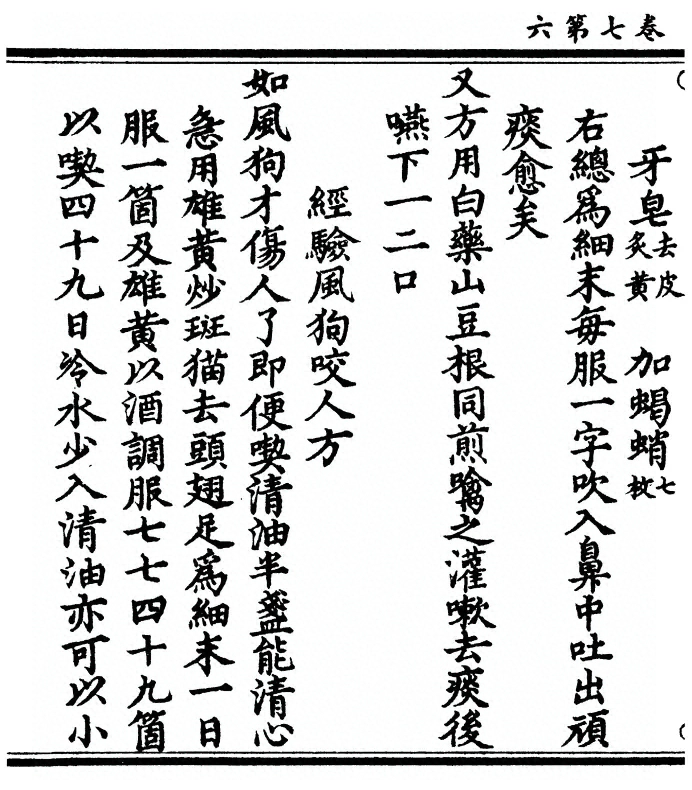 卷七第六
牙皂去皮炙黄　加蝎蛸七枚
右總爲細末每服一字吹入鼻中吐出頑
痰愈矣
又方用白藥山豆根同煎噙之灌嗽去痰後
嚥下一二口
經驗風狗咬人方
如風狗才傷人了即便喫清油半盞能清心
急用雄黄炒斑猫去頭翅足爲細末一日
服一箇及雄黄以酒調服七七四十九箇
以喫四十九日冷水少入清油亦可以小